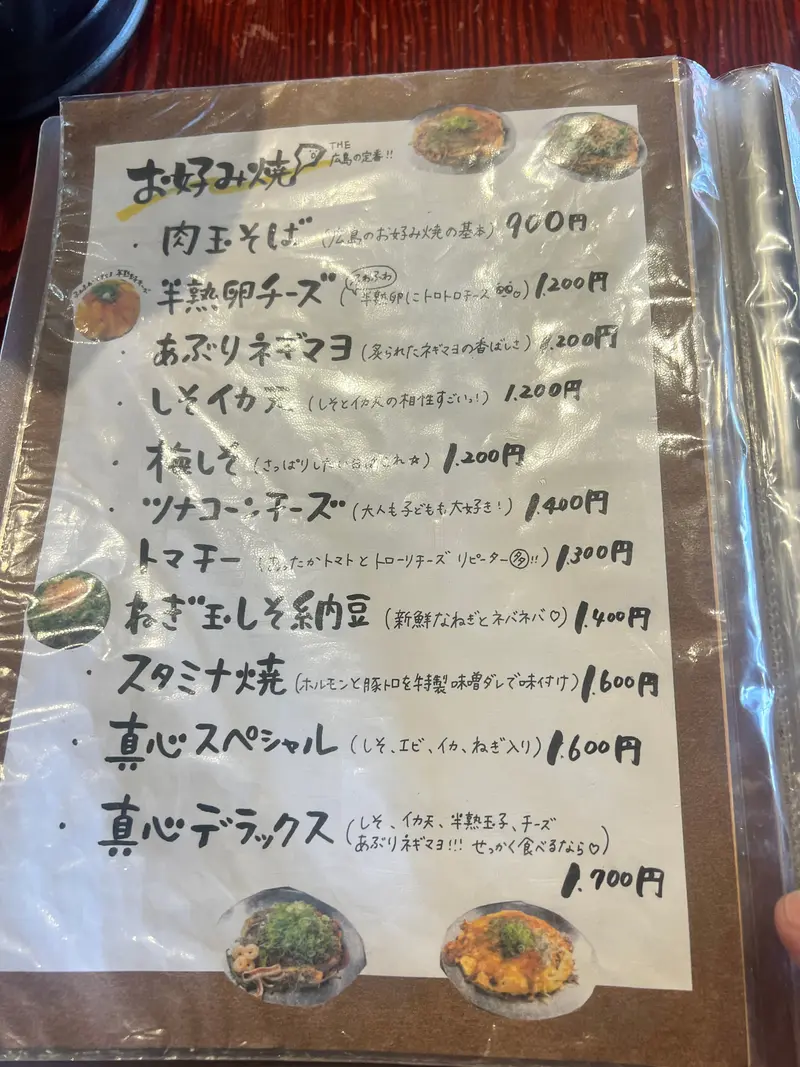 お好み焼
THE
広島の定番!!
・肉玉そば (広島のお好み焼の基本) 900円
半熟卵チーズ (ふわふわ 半熟卵にトロトロチーズ) 1.200円
・あぶりネギマヨ (炙られたネギマヨの香ばしさ) 1.200円
・しそイカ天 (しそとイカ天の相性すごいっ!) 1.200円
・梅しそ (さっぱりしたい これ☆) 1.200円
・ツナコーンチーズ (大人も子どもも大好き!) 1.400円
トマチー (あったかトマトとトローリチーズ リピーター多!!) 1.300円
ねぎ玉しそ納豆 (新鮮なねぎとネバネバ♡) 1.400円
・スタミナ焼 (ホルモンと豚トロを特製味噌ダレで味付け) 1.600円
・真心スペシャル (しそ、エビ、イカ、ねぎ入り) 1.600円
・真心デラックス (しそ、イカ天、半熟玉子、チーズ
あぶりネギマヨ!!! せっかく食べるなら♡)
1.700円